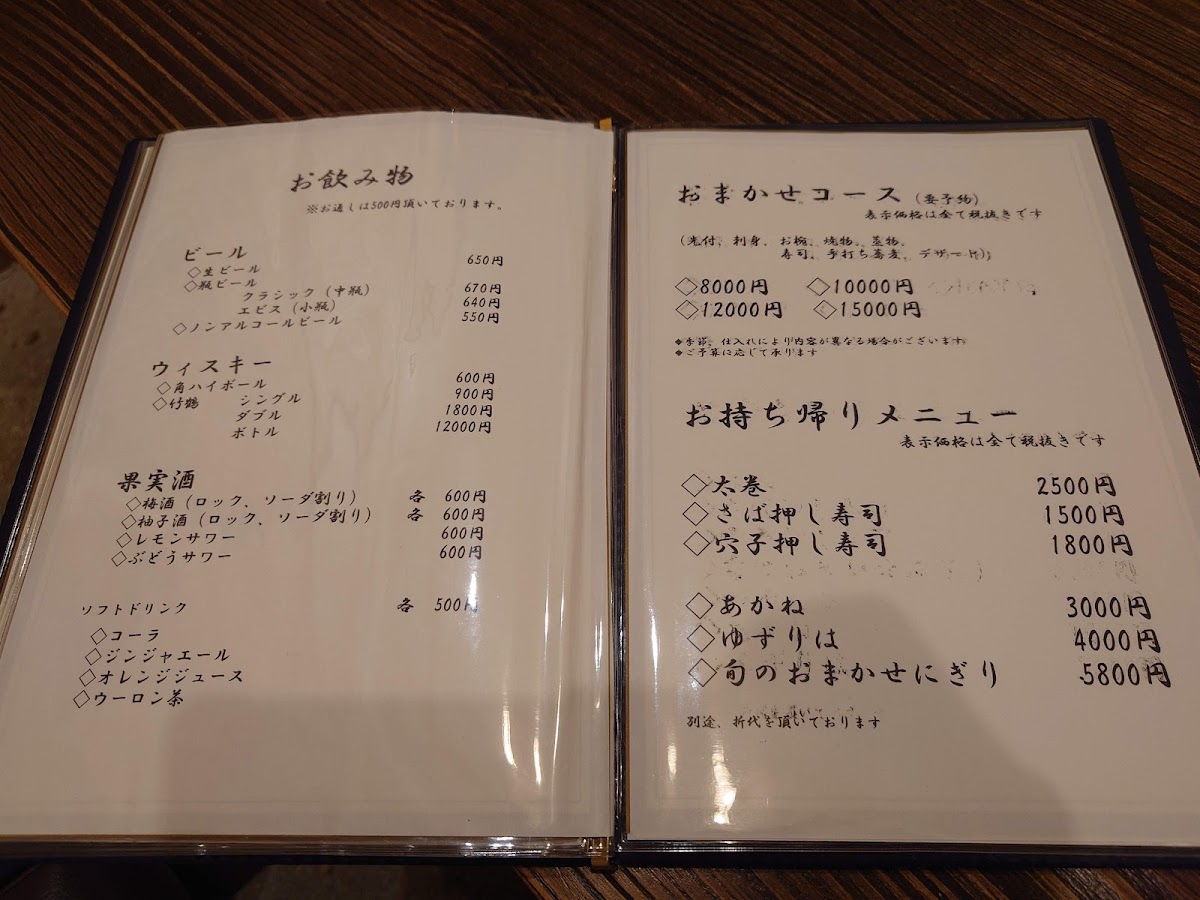 お飲み物
※お通しは500円頂いております。
ビール
◇生ビール 650円
◇瓶ビール
クラシック(中瓶) 670円
エビス(小瓶) 640円
◇ノンアルコールビール 550円
ウィスキー
◇角ハイボール 600円
◇竹鶴 シングル 900円
ダブル 1800円
ボトル 12000円
果実酒
◇梅酒(ロック、ソーダ割り) 各 600円
◇柚子酒(ロック、ソーダ割り) 各 600円
◇レモンサワー 600円
◇ぶどうサワー 600円
ソフトドリンク 各 500円
◇コーラ
◇ジンジャエール
◇オレンジジュース
◇ウーロン茶
おまかせコース(要予約)
表示価格は全て税抜きです
(先付、刺身、お椀、焼物、蒸物、
寿司、手打ち蕎麦、デザート)
◇8000円 ◇10000円
◇12000円 ◇15000円
◆季節、仕入れにより内容が異なる場合がございます。
◆ご予算に応じて承ります
お持ち帰りメニュー
表示価格は全て税抜きです
◇太巻 2500円
◇さば押し寿司 1500円
◇穴子押し寿司 1800円
◇あかね 3000円
◇ゆずりは 4000円
◇旬のおまかせにぎり 5800円
別途、折代を頂いております